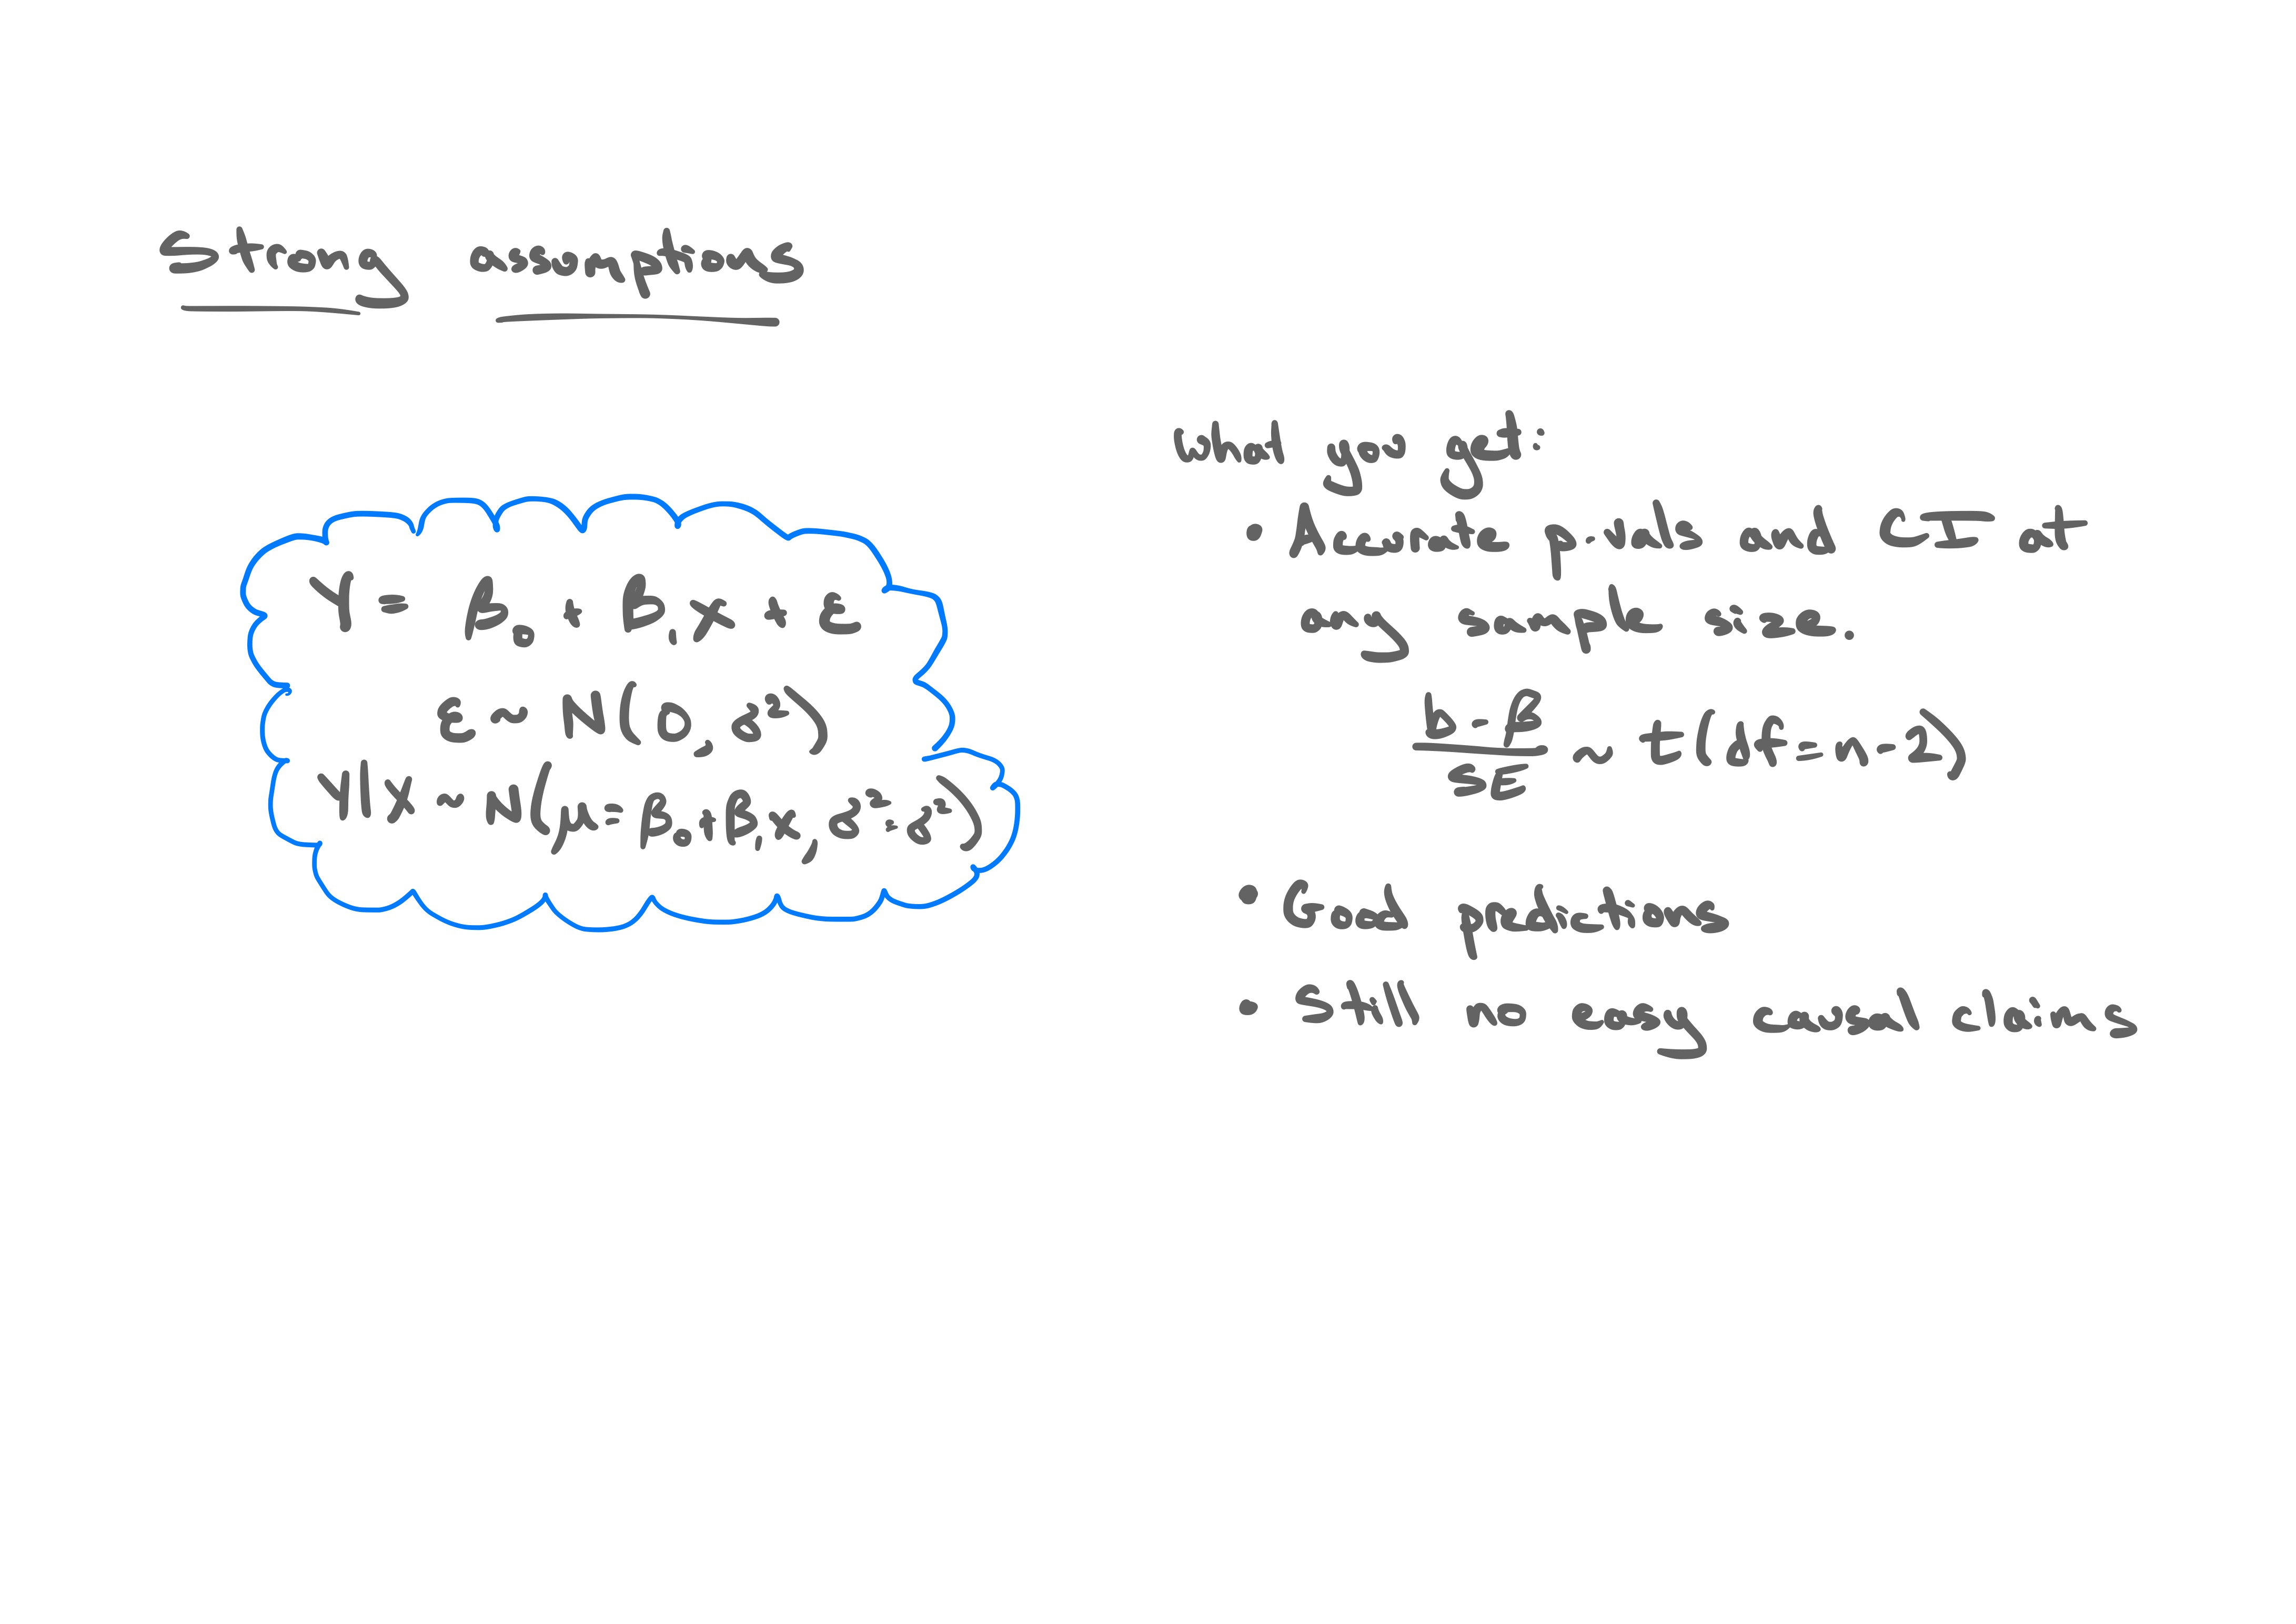 Strong assumptions
Y = β₀ + β₁x + ε
ε ~ N(0, σ²)
Y|X ~ N(μ = β₀ + β₁x, σ² = σ²)
What you get:
• Accurate p-vals and CI at
any sample size.
(b - β)/SE ~ t(df = n - 2)
• Good predictions
• Still no easy causal claims